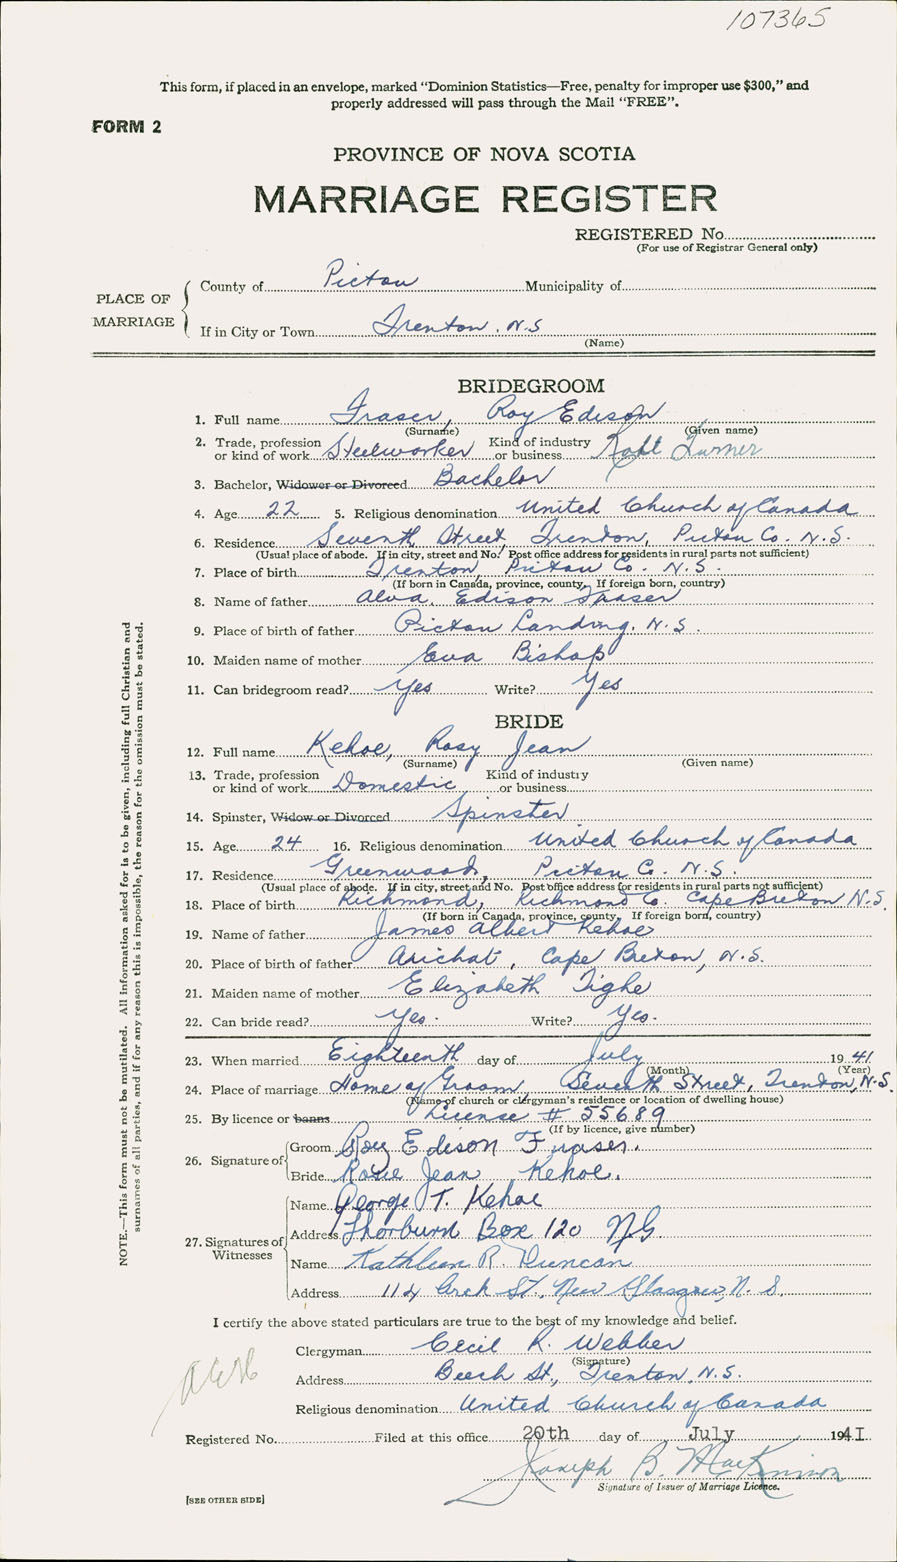 107365
This form, if placed in an envelope, marked "Dominion Statistics—Free, penalty for improper use $300," and
properly addressed will pass through the Mail "FREE".
FORM 2
PROVINCE OF NOVA SCOTIA
MARRIAGE REGISTER
REGISTERED No.
(For use of Registrar General only)
PLACE OF MARRIAGE
County of Pictou Municipality of
If in City or Town Trenton. N.S
(Name)
BRIDEGROOM
1. Full name Fraser, Roy Edison
(Surname) (Given name)
2. Trade, profession or kind of work Steelworker Kind of industry or business Turner
3. Bachelor, Widower or Divorced Bachelor
4. Age 22 5. Religious denomination United Church of Canada
6. Residence Seventh Street Trenton, Pictou Co. N.S.
(Usual place of abode. If in city, street and No. Post office address for residents in rural parts not sufficient)
7. Place of birth Trenton, Pictou Co. N.S.
(If born in Canada, province, county. If foreign born, country)
8. Name of father Alva Edison Fraser
9. Place of birth of father Pictou Landing. N.S.
10. Maiden name of mother Eva Bishop
11. Can bridegroom read? Yes Write? Yes
BRIDE
12. Full name Kehoe, Rosy Jean
(Surname) (Given name)
13. Trade, profession or kind of work Domestic Kind of industry or business
14. Spinster, Widow or Divorced Spinster
15. Age 24 16. Religious denomination United Church of Canada
17. Residence Greenwood, Pictou C. N.S.
(Usual place of abode. If in city, street and No. Post office address for residents in rural parts not sufficient)
18. Place of birth Richmond, Richmond Co. Cape Breton N.S.
(If born in Canada, province, county. If foreign born, country)
19. Name of father James Albert Kehoe
20. Place of birth of father Arichat, Cape Breton, N.S.
21. Maiden name of mother Elizabeth Tighe
22. Can bride read? Yes. Write? Yes.
23. When married Eighteenth day of July 1941
(Month) (Year)
24. Place of marriage Home of Groom, Seventh Street, Trenton, N.S.
(Name of church or clergyman's residence or location of dwelling house)
25. By licence or banns License # 55689
(If by licence, give number)
26. Signature of
Groom Roy Edison Fraser.
Bride Rosie Jean Kehoe.
27. Signatures of Witnesses
Name George T. Kehoe
Address Thorburn Box 120 NS.
Name Kathleen R. Duncan
Address 114 Arch St., New Glasgow, N. S.
I certify the above stated particulars are true to the best of my knowledge and belief.
Clergyman Cecil R. Webber
(Signature)
Address Beech St., Trenton, N.S.
Religious denomination United Church of Canada
Registered No. Filed at this office 20th day of July 1941
Joseph B. MacKinnon
Signature of Issuer of Marriage Licence.
[SEE OTHER SIDE]
NOTE.—This form must not be mutilated. All information asked for is to be given, including full Christian and
surnames of all parties, and if for any reason this is impossible, the reason for the omission must be stated.